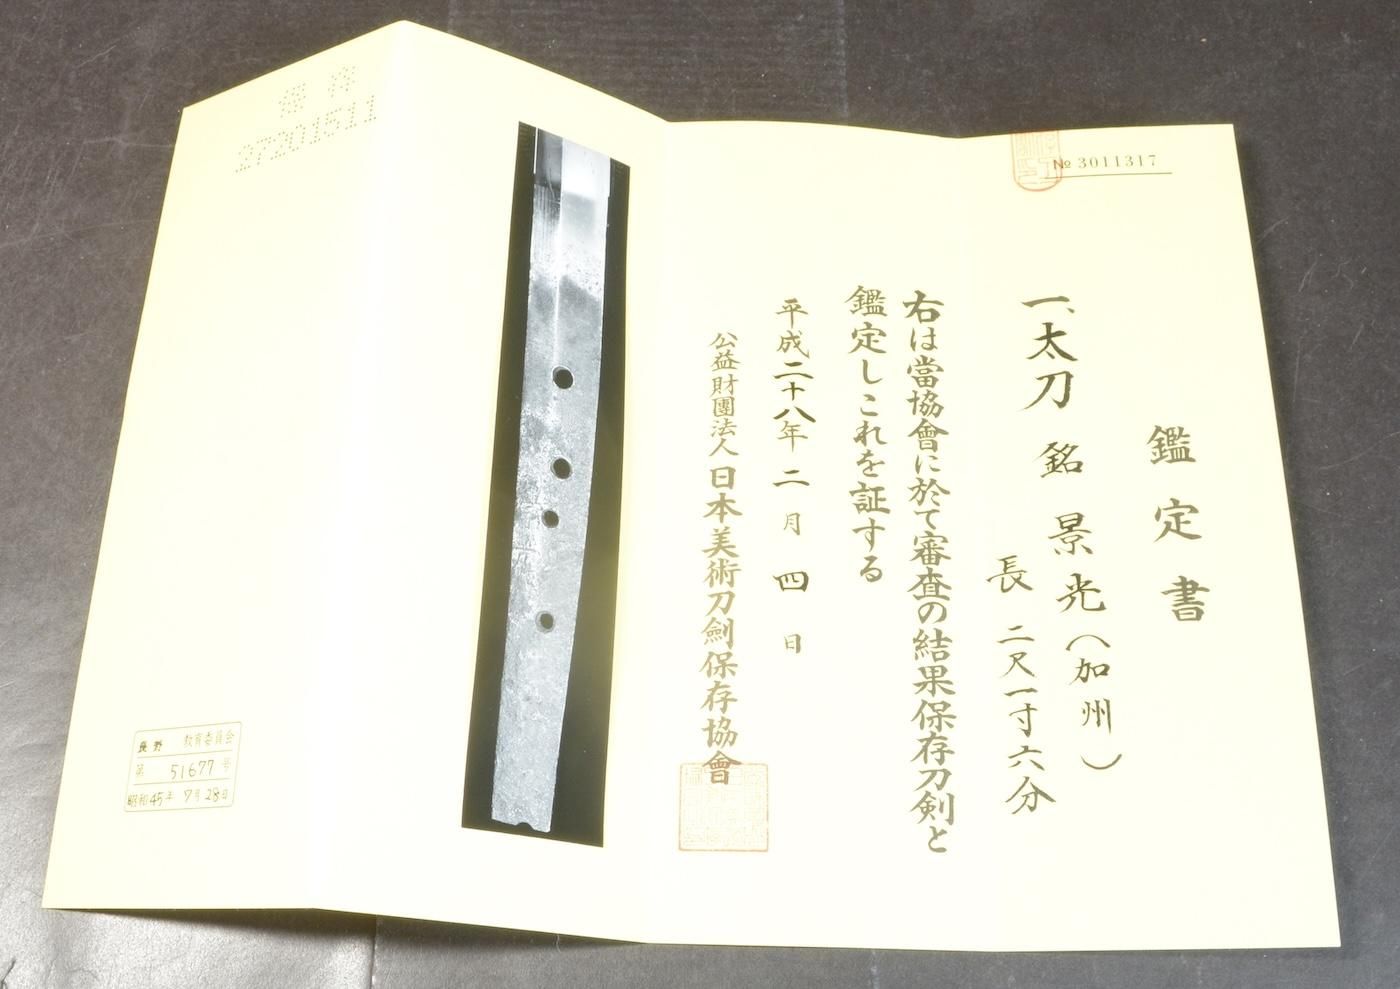 № 3011317
鑑定書
一、太刀 銘 景光(加州)
長 二尺一寸六分
右は當協會に於て審査の結果保存刀剣と
鑑定しこれを証する
平成二十八年二月四日
公益財團法人日本美術刀劍保存協會
27201511
長野 教育委員会
第 51677 号
昭和45年 7月28日